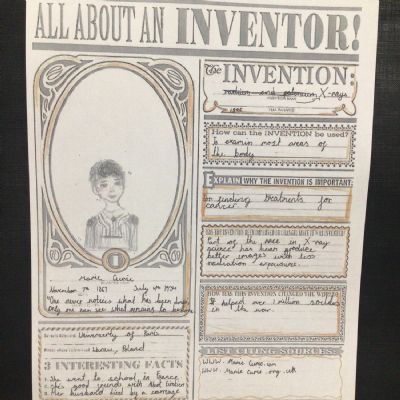 ALL ABOUT AN INVENTOR!
The INVENTION:
X-rays
How can the INVENTION be used?
To examin most areas of
the body
EXPLAIN WHY THE INVENTION IS IMPORTANT:
for finding treatments for
cancer.
Part of the race in X-ray
science has been produce
better images with less
radiation exposure.
HOW HAS THIS INVENTION CHANGED THE WORLD?
It helped over 1 million soldiers
in the war.
LIST CITING SOURCES:
WWW. Marie Curie.
WWW. Marie Curie. org. uk
Marie Curie
November 7th 1867 July 4th 1934
One never notices what has been done,
only one can see what remains to be done
University of Paris
Warsaw, Poland
3 INTERESTING FACTS
1. She went to school in france.
Her husband died by a carriage